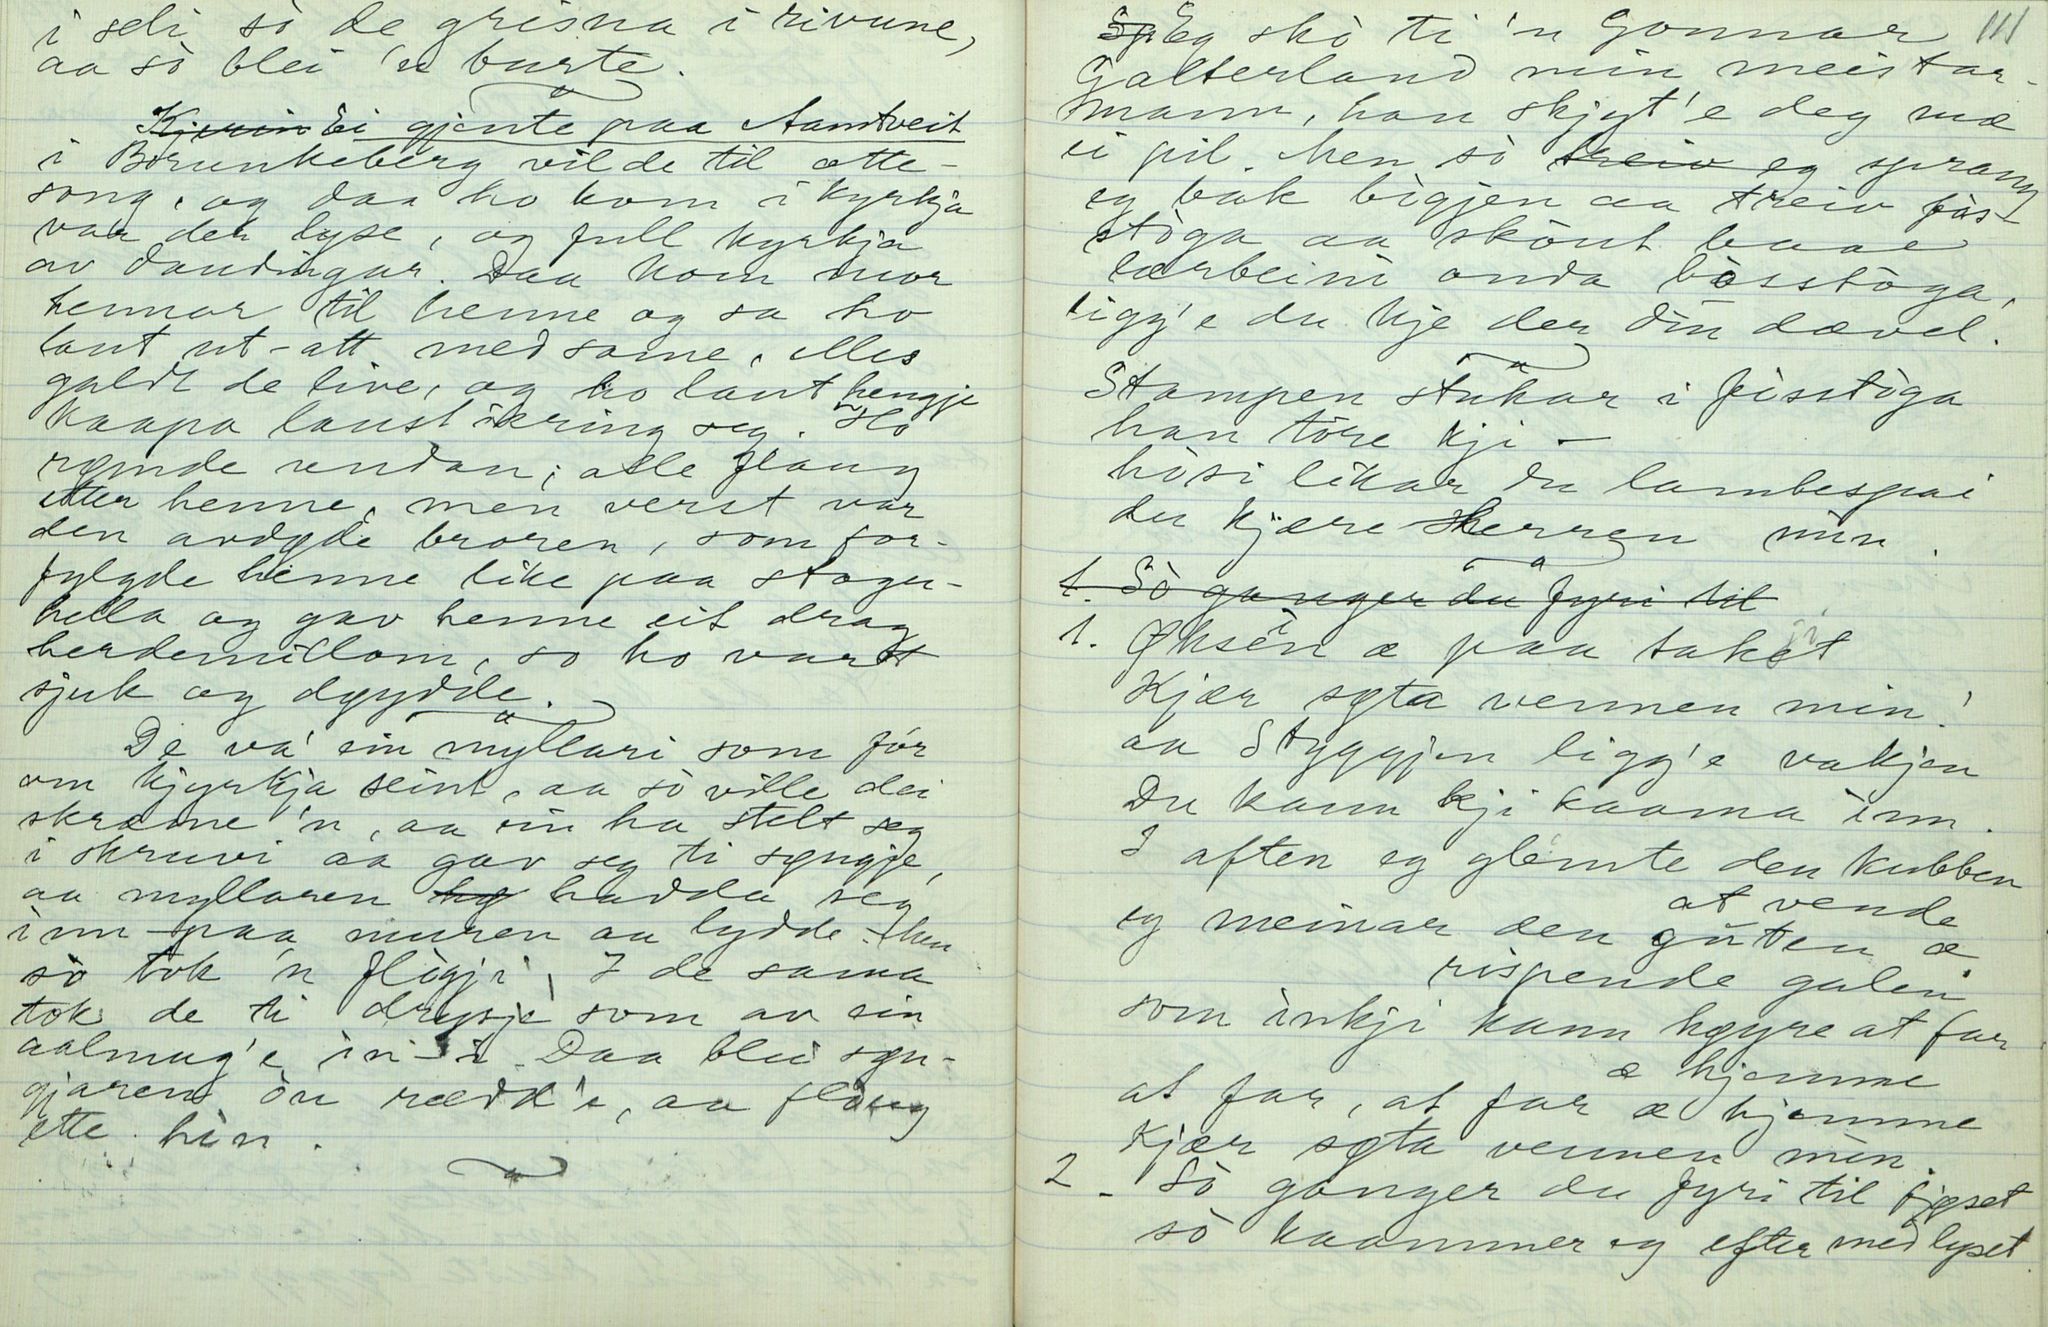 i seli sò de grisna i rivune,
aa sò blei 'n burte.
Kjerin Ei gjente paa Aamtveit
i Brunkeberg vilde til otte-
song, og daa ho kom i kyrkja
var der lyse, og full kyrkja
av daudingar. Daa kom mor
hennar til henne og sa ho
laut ut-att med same, elles
galdt de live, og ho laut hengje
kaapa laust ikring seg. Ho
rømde undan; alle flaug
etter henne, men verst var
den avdøde broren, som for-
fylgde henne like paa stogu-
hella og gav henne eit drag
herdemillom, so ho vart
sjuk og døydde.
De va' ein myllari som fór
om kjyrkja seint, aa sò ville dei
skræme 'n, aa ein ha stelt seg
i skruvi aa gav seg ti syngje,
aa myllaren hadda seg
inn paa muren aa lydde. Men
sò tok 'n fligji, I de sama
tok de ti drysje som av ein
aalmug'e in-i. Daa blei syn-
gjaren òn rædd'e, aa flaug
ette hin.
111
Sp Eg skò ti 'n Gonnar
Galterland min meistar-
mann, han skjyt'e deg mæ
ei pil. Men sò treiv eg sprang
eg bak bigjen aa treiv fòs-
stòga aa skòut baae
lærbeini onda bòsstòga,
ligg'e du kje der din dævel.
Stampen stukar i fisstòga
han tòre kji –
hòsi likar du lambespai
du kjære Herren min.
1. Sò ganger du fyri til
1. Øksèn æ paa taket
Kjær søta vennen min!
aa Styggjen ligg'e vakjen
Du kann kji kaama inn.
I aften eg glemte den kubben
at vende
eg meinar den guten æ
rispende galen
som inkji kann høyre at far
æ hjemme
at far, at far æ hjemme
Kjær søta vennen min.
2. Sò ganger du fyri til fjøset
sò kaammer eg efter med lyset